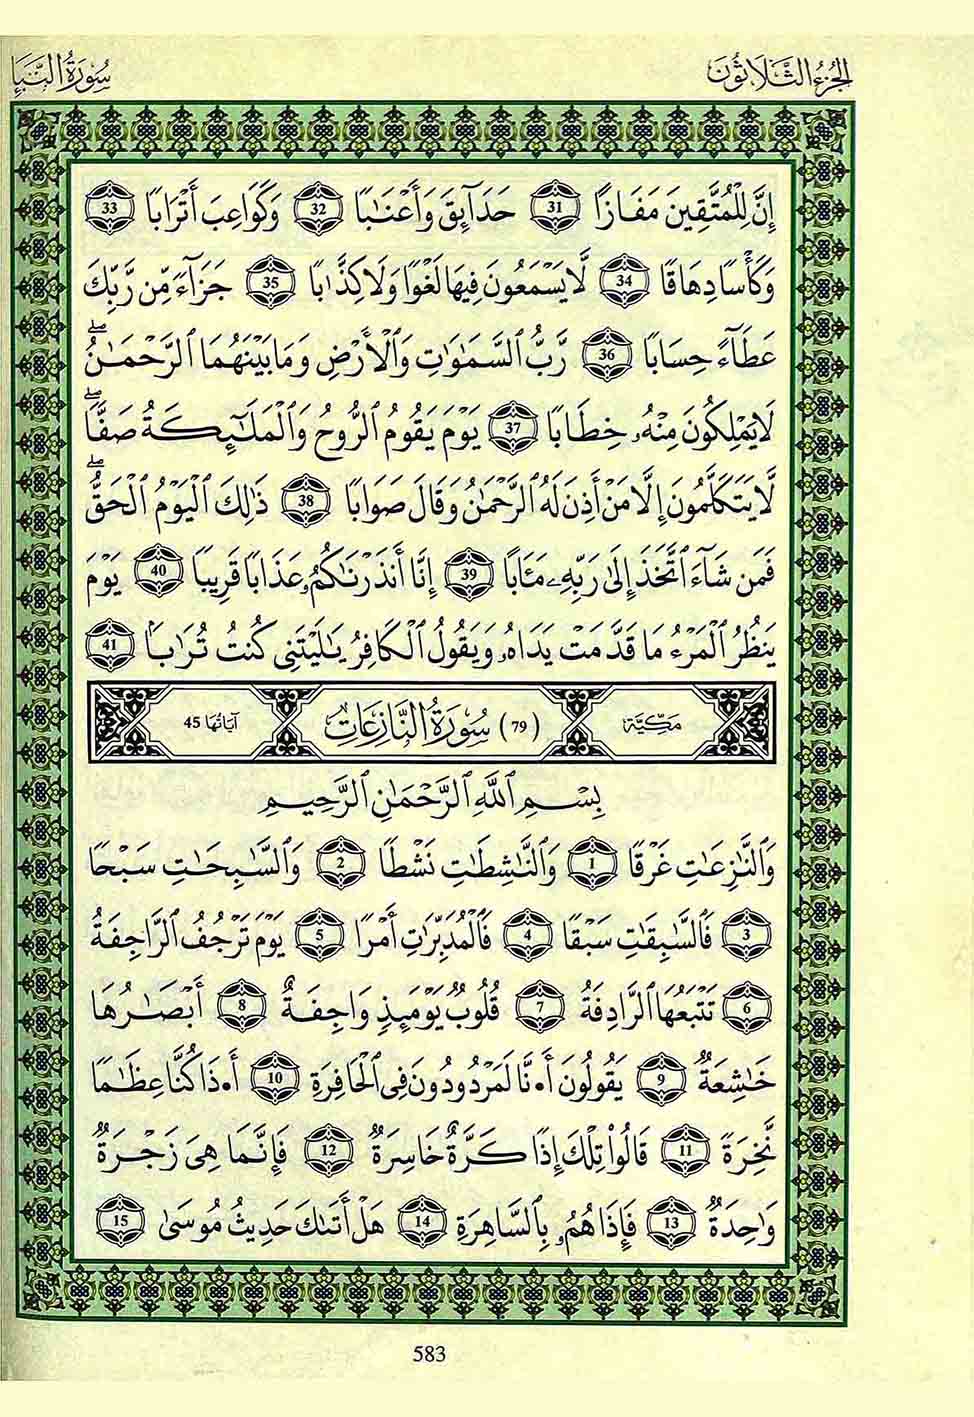 الجزء الثلاثون
سورة النبإ
إِنَّ لِلْمُتَّقِينَ مَفَازًا 31 حَدَآئِقَ وَأَعْنَٰبًا 32 وَكَوَاعِبَ أَتْرَابًا 33
وَكَأْسًا دِهَاقًا 34 لَّا يَسْمَعُونَ فِيهَا لَغْوًا وَلَا كِذَّٰبًا 35 جَزَآءً مِّن رَّبِّكَ
عَطَآءً حِسَابًا 36 رَّبُّ ٱلسَّمَٰوَٰتِ وَٱلْأَرْضِ وَمَا بَيْنَهُمَا ٱلرَّحْمَٰنُۖ
لَا يَمْلِكُونَ مِنْهُۥ خِطَابًا 37 يَوْمَ يَقُومُ ٱلرُّوحُ وَٱلْمَلَٰٓئِكَةُ صَفًّاۖ
لَّا يَتَكَلَّمُونَ إِلَّا مَنْ أَذِنَ لَهُ ٱلرَّحْمَٰنُ وَقَالَ صَوَابًا 38 ذَٰلِكَ ٱلْيَوْمُ ٱلْحَقُّۖ
فَمَن شَآءَ ٱتَّخَذَ إِلَىٰ رَبِّهِۦ مَـَٔابًا 39 إِنَّا أَنذَرْنَٰكُمُۥ عَذَابًا قَرِيبًا 40 يَوْمَ
يَنظُرُ ٱلْمَرْءُ مَا قَدَّمَتْ يَدَاهُ وَيَقُولُ ٱلْكَافِرُ يَٰلَيْتَنِى كُنتُ تُرَٰبًا 41
مَكِّيَّة (79) سُورَةُ النَّازِعَاتِ آيَاتُهَا 45
بِسْمِ ٱللَّهِ ٱلرَّحْمَٰنِ ٱلرَّحِيمِ
وَٱلنَّٰزِعَٰتِ غَرْقًا 1 وَٱلنَّٰشِطَٰتِ نَشْطًا 2 وَٱلسَّٰبِحَٰتِ سَبْحًا
3 فَٱلسَّٰبِقَٰتِ سَبْقًا 4 فَٱلْمُدَبِّرَٰتِ أَمْرًا 5 يَوْمَ تَرْجُفُ ٱلرَّاجِفَةُ
6 تَتْبَعُهَا ٱلرَّادِفَةُ 7 قُلُوبٌ يَوْمَئِذٍ وَاجِفَةٌ 8 أَبْصَٰرُهَا
خَٰشِعَةٌ 9 يَقُولُونَ أَ•نَّا لَمَرْدُودُونَ فِى ٱلْحَافِرَةِ 10 أَ•ذَا كُنَّا عِظَٰمًا
نَّخِرَةً 11 قَالُوا۟ تِلْكَ إِذًا كَرَّةٌ خَاسِرَةٌ 12 فَإِنَّمَا هِىَ زَجْرَةٌ
وَٰحِدَةٌ 13 فَإِذَا هُمُۥ بِٱلسَّاهِرَةِ 14 هَلْ أَتَىٰكَ حَدِيثُ مُوسَىٰ 15
583